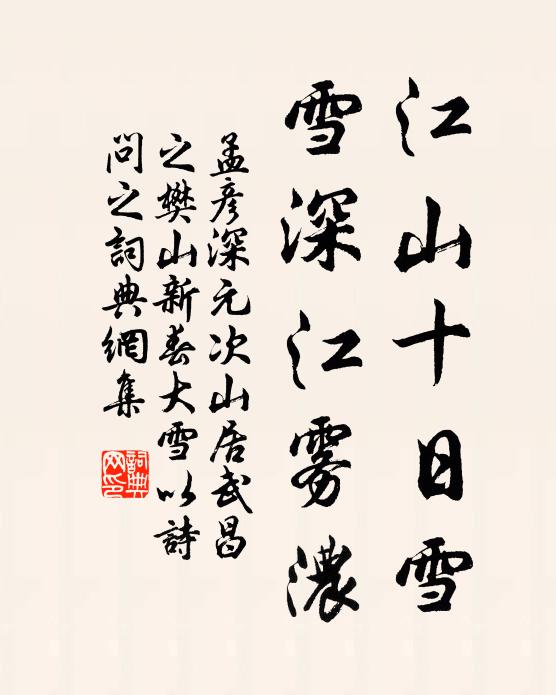 江山十日雪
雪深江雾濃
孟彦深元次山居武昌
之樊山新春大雪以詩
問之詞典網集
詞典
网印